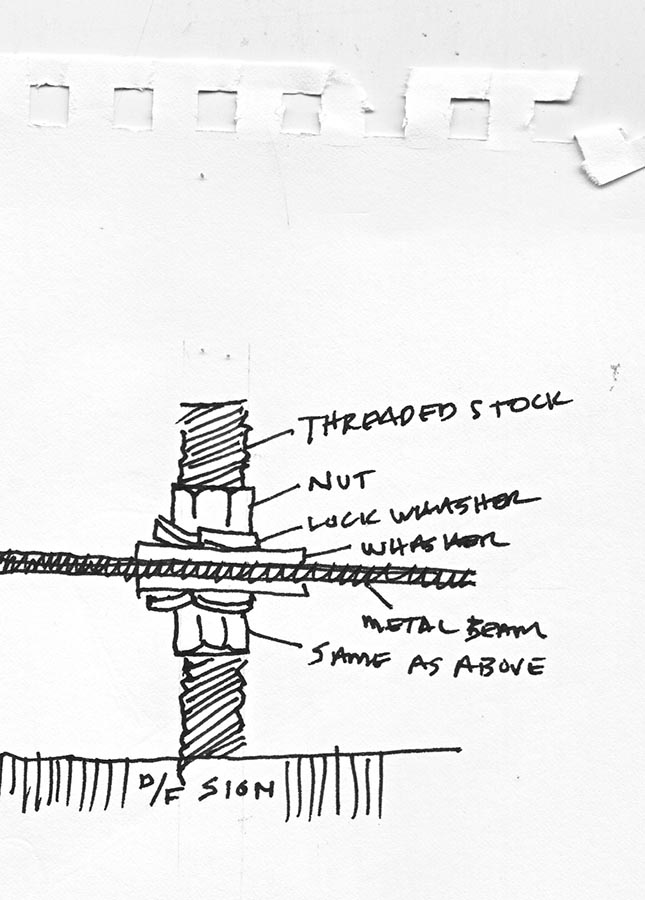 THREADED STOCK
NUT
LOCK WHASHER
WHASHER
METAL BEAM
SAME AS ABOVE
D/F SIGN